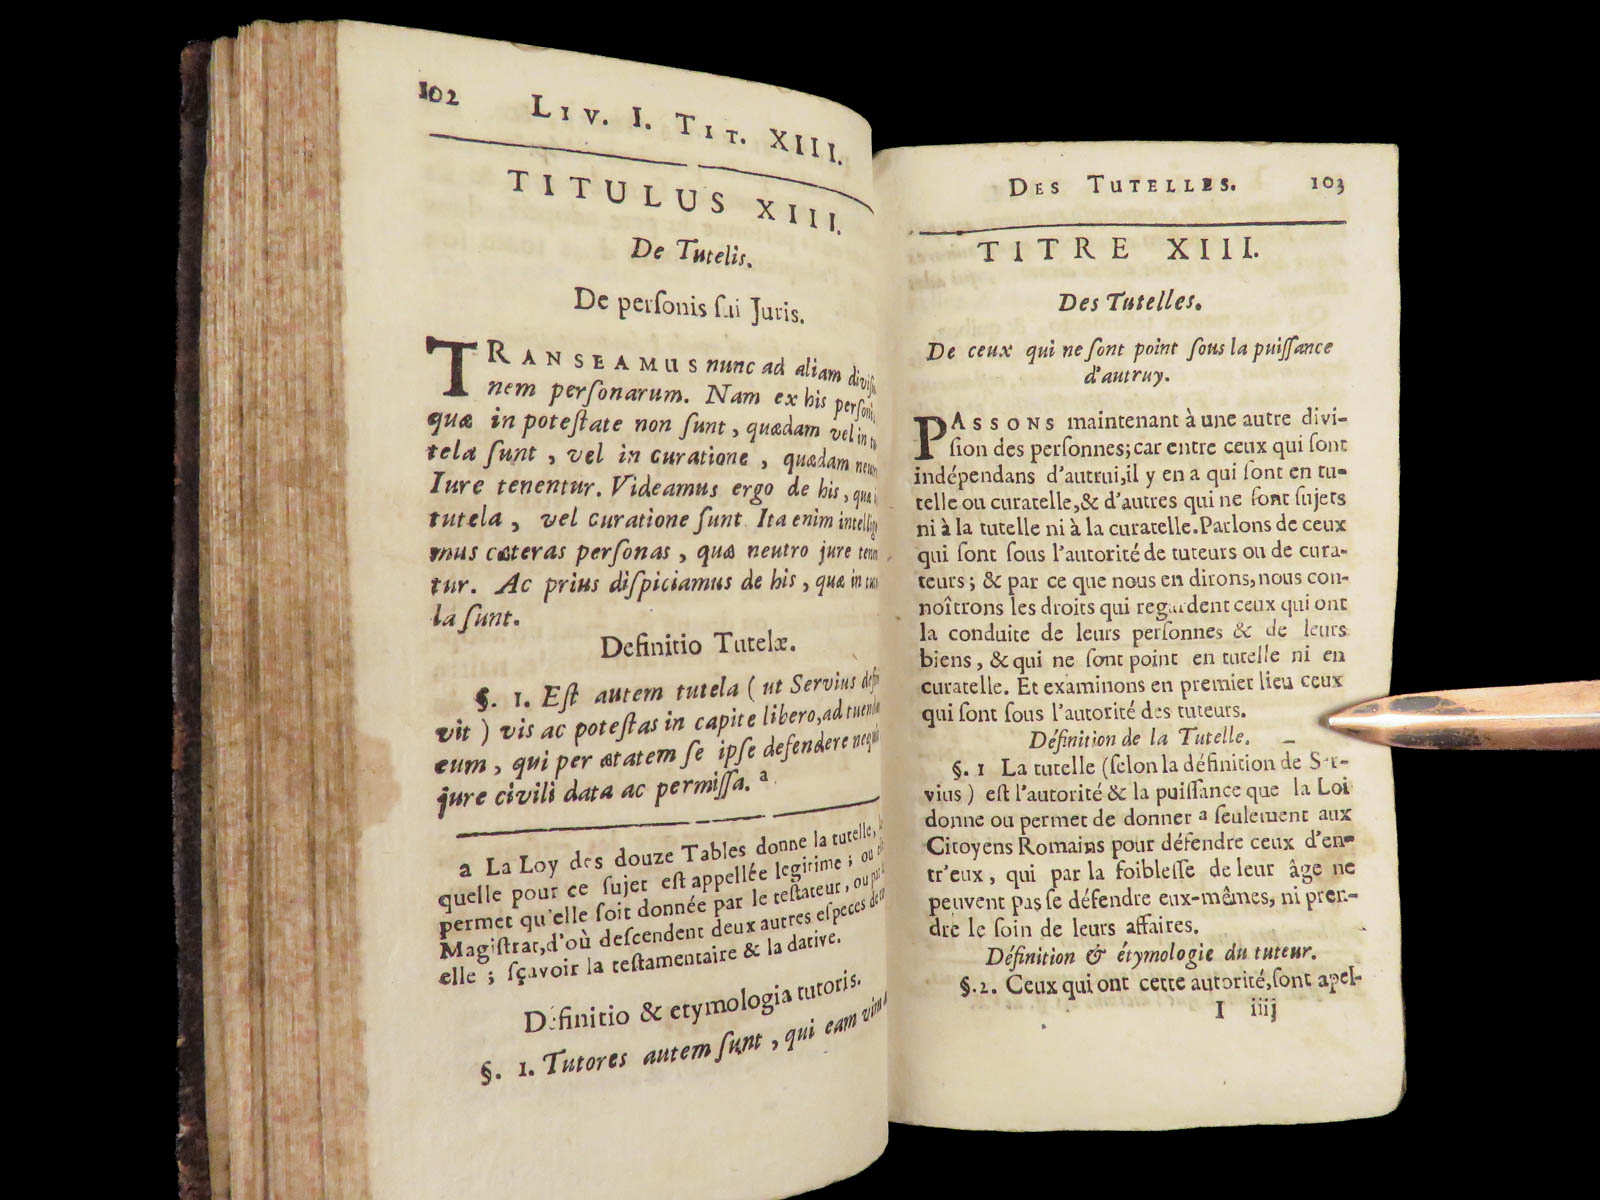 102
LIV. I. TIT. XIII.
TITULUS XIII.
De Tutelis.
De perſonis ſui Juris.
TRANSEAMUS nunc ad aliam
nem perſonarum. Nam ex his
quæ in poteſtate non ſunt, quædam vel in
tela ſunt, vel in curatione, quædam
Iure tenentur. Videamus ergo de his,
tutela, vel curatione ſunt. Ita enim
mus cæteras perſonas, quæ neutro jure
tur. Ac prius diſpiciamus de his, quæ in
la ſunt.
Definitio Tutelæ.
§. 1. Eſt autem tutela (ut Servius
vit) vis ac poteſtas in capite libero, ad
eum, qui per ætatem ſe ipſe defendere
jure civili data ac permiſſa. a
a La Loy des douze Tables donne la tutelle,
quelle pour ce ſujet eſt appellée legitime; ou
permet qu'elle ſoit donnée par le teſtateur, ou
Magiſtrat, d'où deſcendent deux autres eſpeces
elle; ſçavoir la teſtamentaire & la dative.
Definitio & etymologia tutoris.
§. 1. Tutores autem ſunt, qui eam vim
DES TUTELLES. 103
TITRE XIII.
Des Tutelles.
De ceux qui ne ſont point ſous la puiſſance
d'autruy.
PASSONS maintenant à une autre divi-
ſion des perſonnes; car entre ceux qui ſont
indépendans d'autrui, il y en a qui ſont en tu-
telle ou curatelle, & d'autres qui ne ſont ſujets
ni à la tutelle ni à la curatelle. Parlons de ceux
qui ſont ſous l'autorité de tuteurs ou de cura-
teurs; & par ce que nous en dirons, nous con-
noîtrons les droits qui regardent ceux qui ont
la conduite de leurs perſonnes & de leurs
biens, & qui ne ſont point en tutelle ni en
curatelle. Et examinons en premier lieu ceux
qui ſont ſous l'autorité des tuteurs.
Définition de la Tutelle.
§. 1 La tutelle (ſelon la définition de Ser-
vius) eſt l'autorité & la puiſſance que la Loi
donne ou permet de donner a ſeulement aux
Citoyens Romains pour défendre ceux d'en-
tr'eux, qui par la foibleſſe de leur âge ne
peuvent pas ſe défendre eux-mêmes, ni pren-
dre le ſoin de leurs affaires.
Définition & étymologie du tuteur.
§. 2. Ceux qui ont cette autorité, ſont apel-
I iiij